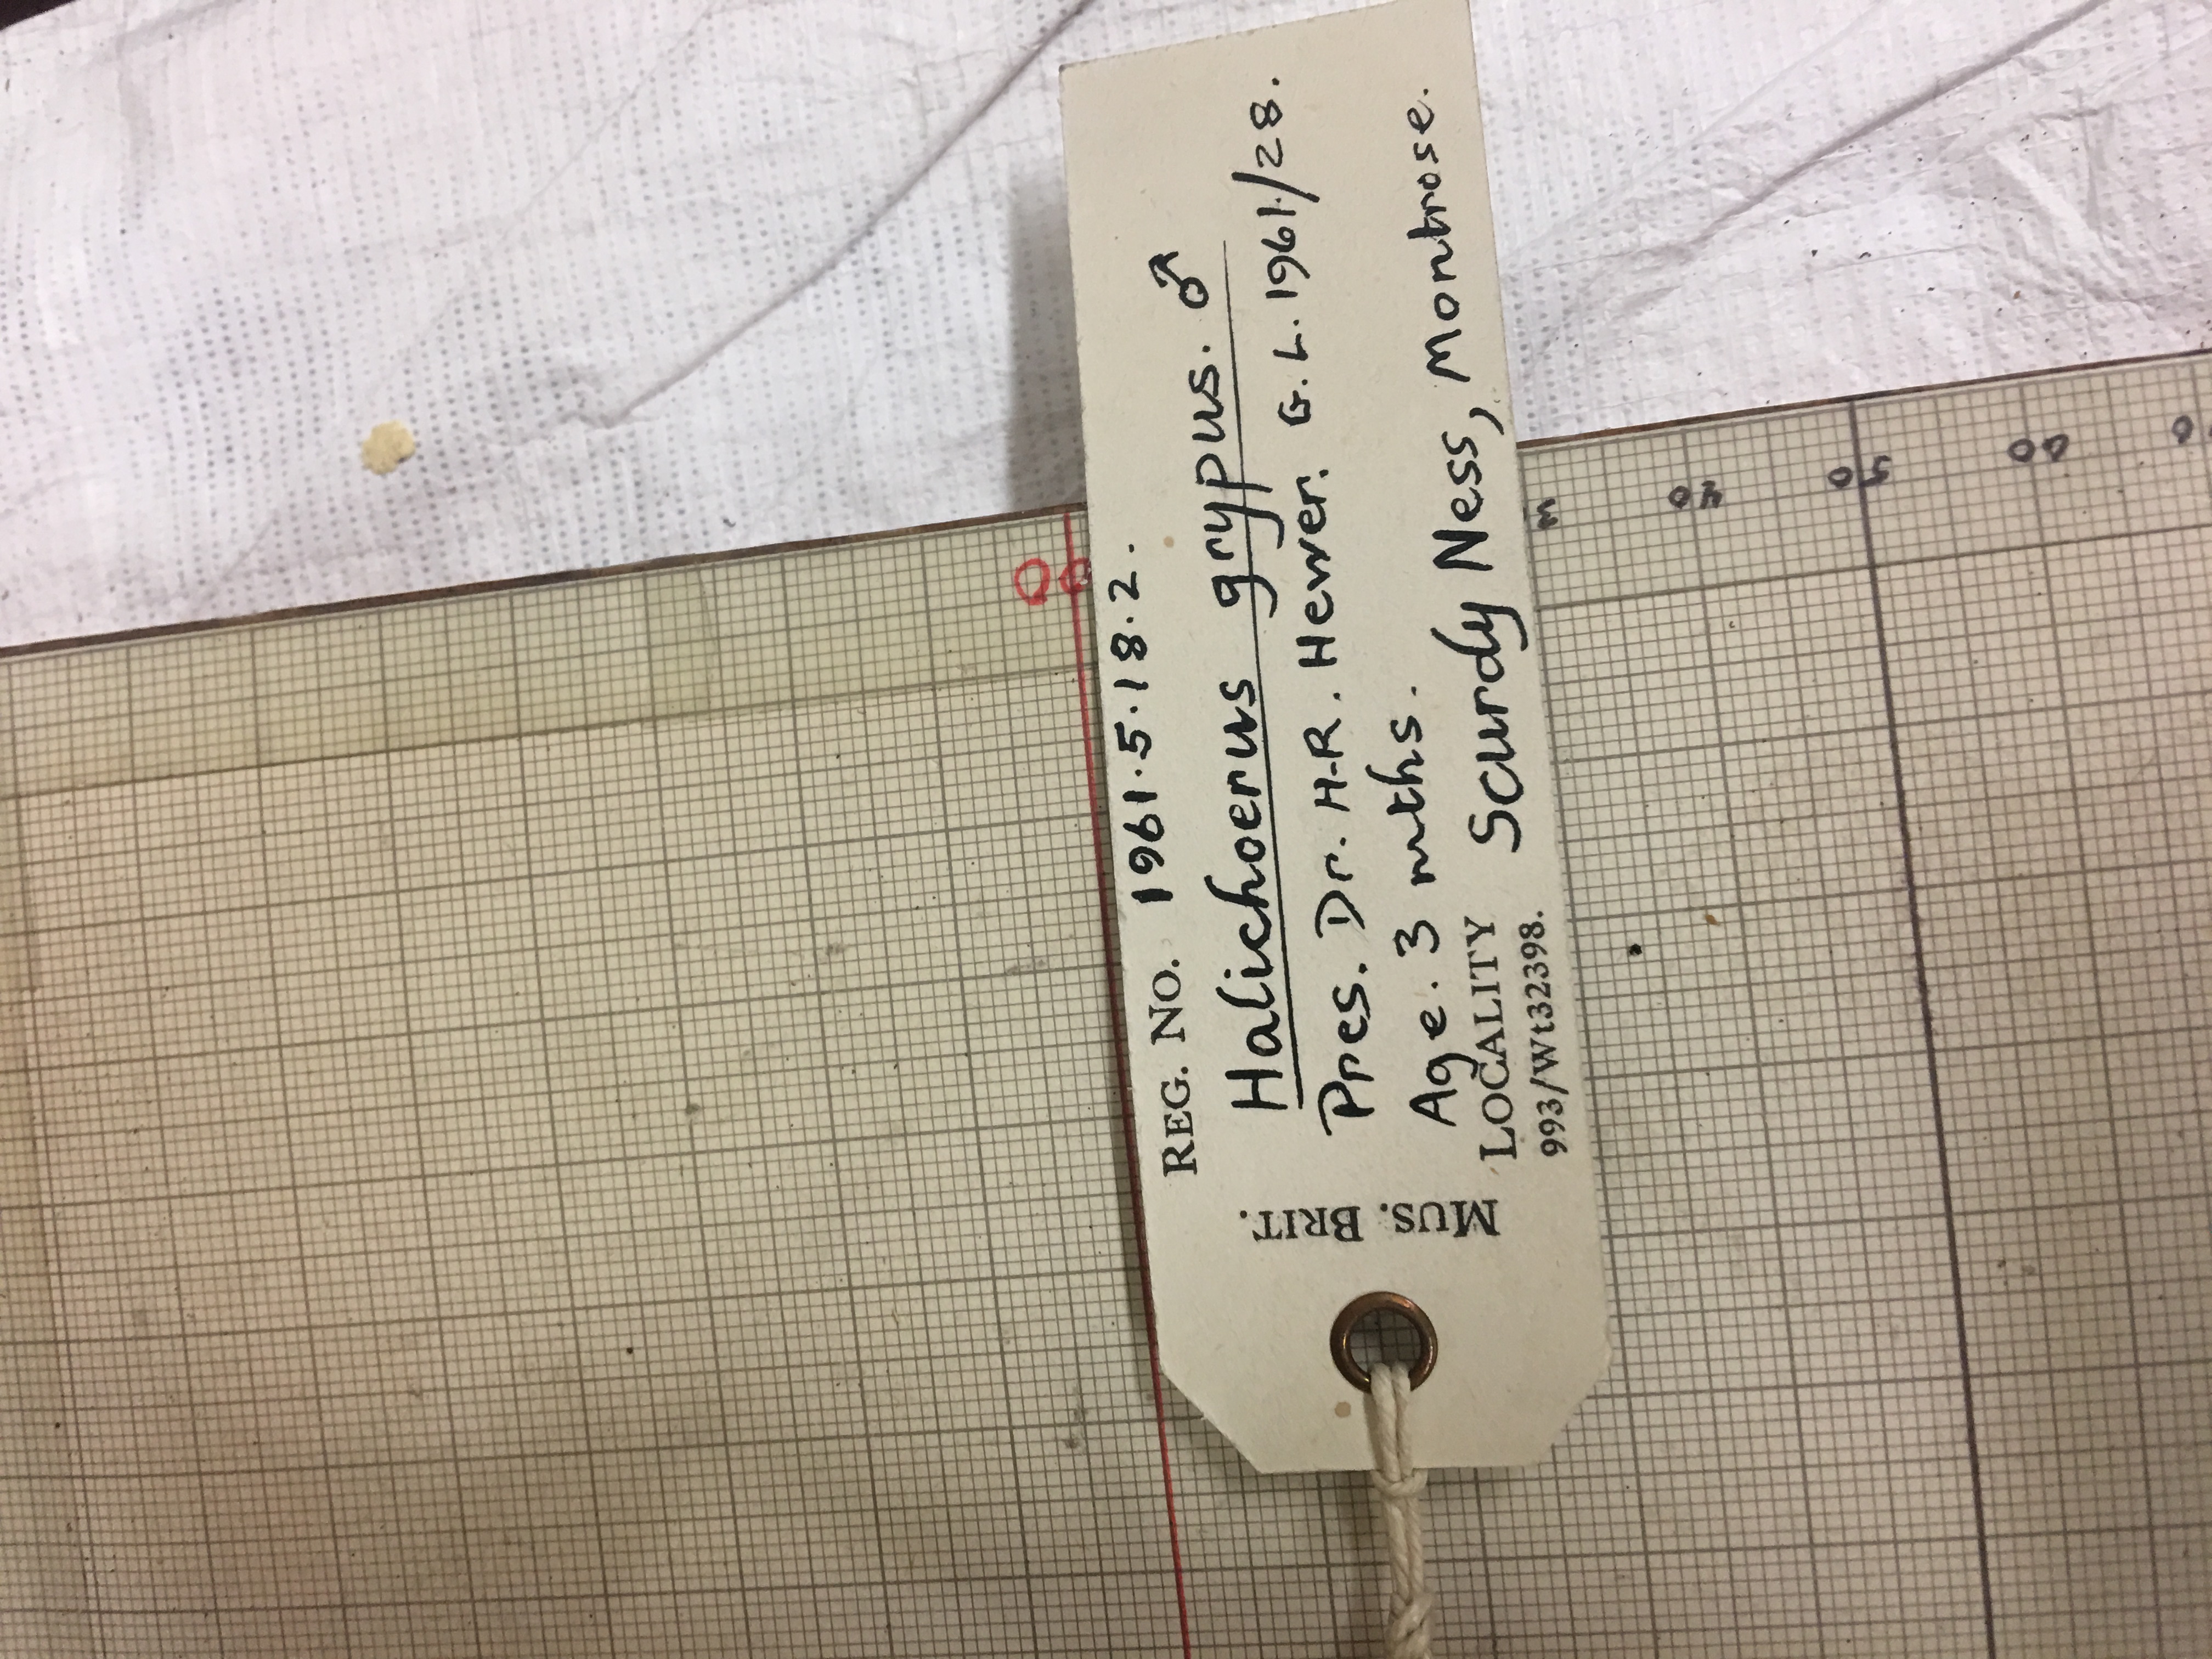 MUS. BRIT.
REG. NO. 1961.5.18.2.
Halichoerus grypus. ♂
Pres. Dr. H.R. Hewer. G.L. 1961/28.
Age. 3 mths.
LOCALITY Scurdy Ness, Montrose.
993/Wt32398.
40
50